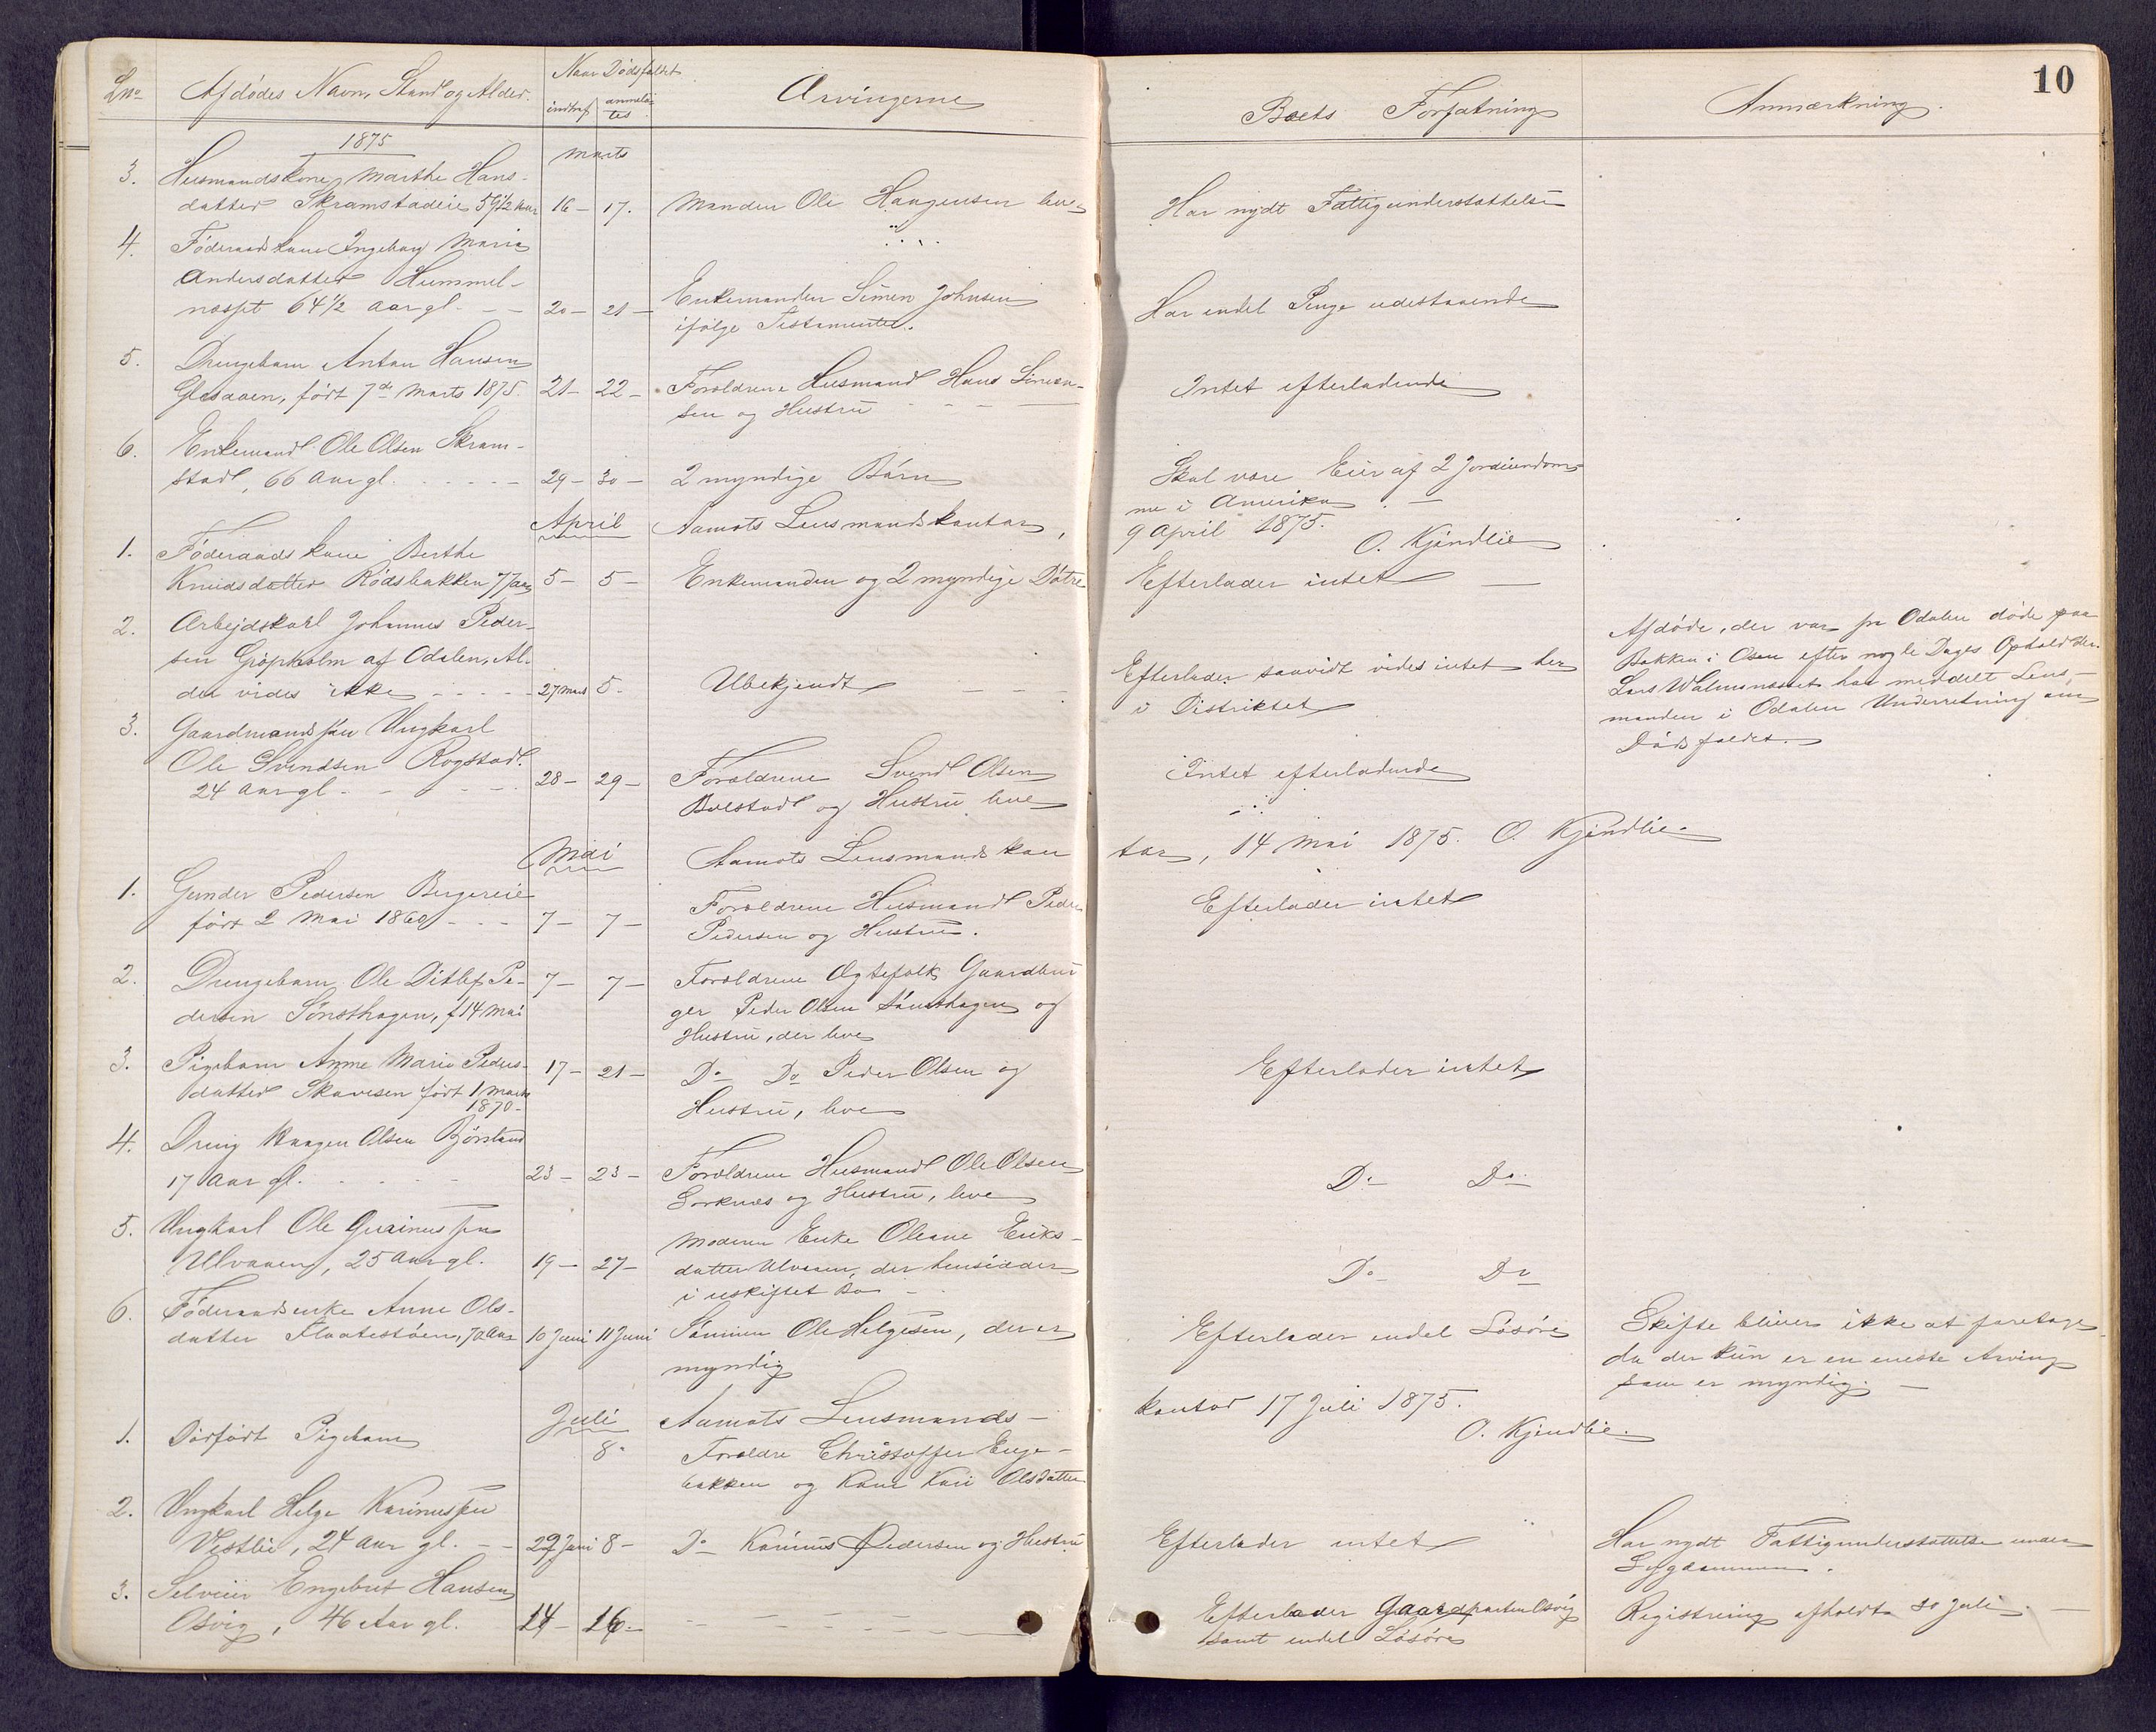 10
Lno Afdødes Navn, Stand og Alder. Naar Dødsfaldet Arvingerne Boets Forfatning Anmærkning.
indtraf anmeldtes
1875
Marts
3. Husmandskone Marthe Hans-
datter Skramstadeie 59½ Aar 16 – 17. Manden Ole Haagensen leve Har nydt Fattigunderstøttelse
4. Føderaadskone Ingeborg Maria
Andersdatter Hummel-
næsset 64½ Aar gl. – – 20 – 21 – Enkemanden Simen Johnsen Har endel Penge udestaaende
ifølge Testamentet.
5. Drengebarn Anton Hansen
Glesaaen, født 7de Marts 1875. 21 – 22 – Forældrene Husmand Hans Simen- Intet efterladende
sen og Hustru
6. Enkemand Ole Olsen Skram-
stad, 66 Aar gl. 29 – 30 – 2 myndige Børn Skal være Eier af 2 Jordeiendom-
me i Amerika –
April Aamots Lensmandskontor, 9 April 1875. O. Kjendlie
1. Føderaadskone Berthe
Knudsdatter Rødsbakken 77 Aar 5 – 5 – Enkemanden og 2 myndige Døtre Efterlader intet –
2. Arbejdskarl Johannes Peder-
sen Grøpholm af Odalen, Al-
der vides ikke 27 Marts 5 – Ubekjendt Efterlader saavidt vides intet her
i Distriktet
Afdøde, der var fra Odalen døde paa
Bakken i Osen efter nogle Dages Ophold der.
Lars Walmsnæsset har meddelt Lens-
manden i Odalen Underretning om
Dødsfaldet.
3. Gaardmandssøn Ungkarl
Ole Svendsen Rogstad.
24 Aar gl. 28 – 29 – Forældrene Svend Olsen Intet efterladende
Bolstad og Hustru leve
Mai Aamots Lensmandskon tor, 14 Mai 1875. O. Kjendlie.
1. Gunder Pedersen Bergereie
født 2 Mai 1860 7 – 7 – Forældrene Husmand Peder Efterlader intet
Pedersen og Hustru.
2. Drengebarn Ole Ditlef Pe- 7 – 7 – Forældrene Ægtefolk Gaardbru
dersen Sønsthagen, f 14 Mai ger Peder Olsen Sønsthagen og
Hustru, der leve
3. Pigebarn Anne Marie Peders- 17 – 21 – Do Do Peder Olsen og Efterlader intet
datter Skavesen født 1 Marts
1870 – Hustru, leve
4. Dreng Haagen Olsen Bjørstad
17 Aar gl. 23 – 23 – Forældrene Husmand Ole Olsen Do Do
Sorknes og Hustru, leve
5. Ungkarl Ole Gurinussen
Ulvaaen, 25 Aar gl. 19 – 27 – Moderen Enke Oleane Eriks- Do Do
datter Ulvaaen, der hensidder
i uskiftet Bo –
6. Føderaadsenke Anne Ols-
datter Flaatestøen, 70 Aar 10 Juni 11 Juni Sønnen Ole Helgesen, der er Efterlader endel Løsøre
myndig
Skifte bliver ikke at foretage,
da der kun er en eneste Arving
som er myndig. –
Juli Aamots Lensmands- kontor 17 Juli 1875.
O. Kjendlie.
1. Dødfødt Pigebarn 8 – Forældre Christoffer Enge-
bakken og Kone Kari Olsdatter
2. Ungkarl Helge Karinussen
Vestlie, 24 Aar gl. – – 29 Juni 8 – Do Karinus Pedersen og Hustru Efterlader intet
Har nydt Fattigunderstøttelse under
Sygdommen.
3. Selveier Engebret Hansen
Osvig, 46 Aar gl. 14 – 16 – Efterlader Gaardparten Osvig
samt endel Løsøre
Registrering afholdt 30 Juli. –